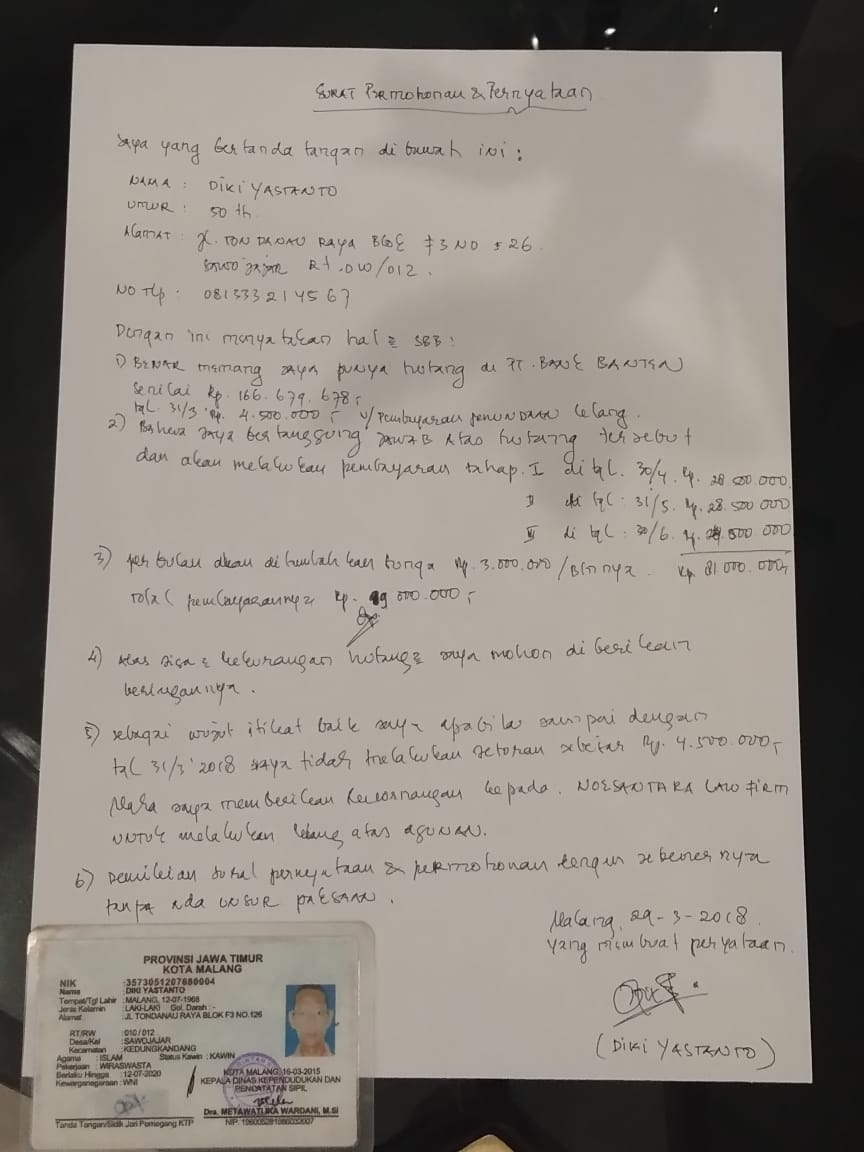 SURAT Permohonan & Pernyataan
Saya yang bertanda tangan di bawah ini :
NAMA : DIKI YASTANTO
UMUR : 50 th
Alamat : Jl. TONDANAU RAYA BLOK F3 NO 126
SAWOJAJAR Rt. 010/012.
NO Tlp. 081333214567
Dengan ini menyatakan hal2 SBB :
1) BENAR memang saya punya hutang di PT. BANK BANTEN
Senilai Rp. 166.679.678,-
tgl. 31/3 Rp. 4.500.000,- u/ pembayaran penundaan lelang.
2) Bahwa saya bertanggung JAWAB Atas hutang tersebut
dan akan melakukan pembayaran tahap. I di tgl. 30/4. Rp. 28.500.000.
II di tgl : 31/5. Rp. 28.500.000
III di tgl : 30/6. Rp. 500 000
3) per bulan akan di tambahkan bunga Rp. 3.000.000/Blnnya. Rp. 81.000.000,-
total pembayarannya Rp. 000.000,-
4) Atas sisa2 kekurangan hutang2 saya mohon di berikan
5) sebagai wujut itikat baik saya apabila sampai dengan
tgl 31/3'2018 saya tidak melakukan setoran sebesar Rp. 4.500.000,-
Maka saya memberikan kewenangan kepada. NOESANTARA LAW FIRM
UNTUK melakukan lelang atas AGUNAN.
6) Demikian surat pernyataan & permohonan dengan sebenernya
tanpa Ada UNSUR PAKSAAN.
Malang, 29-3-2018.
yang membuat peryataan.
(DIKI YASTANTO)
PROVINSI JAWA TIMUR
KOTA MALANG
NIK :3573051207680004
Nama :DIKI YASTANTO
Tempat/Tgl Lahir :MALANG, 12-07-1968
Jenis Kelamin :LAKI-LAKI Gol. Darah :-
Alamat :JL.TONDANAU RAYA BLOK F3 NO.126
RT/RW :010/012
Desa/Kel :SAWOJAJAR
Kecamatan :KEDUNGKANDANG
Agama :ISLAM Status Kawin : KAWIN
Pekerjaan :WIRASWASTA
Berlaku Hingga :12-07-2020
Kewarganegaraan :WNI
KOTA MALANG,16-03-2015
KEPALA DINAS KEPENDUDUKAN DAN
PENCATATAN SIPIL
Dra. METAWATI IKA WARDANI, M.Si
Tanda Tangan/Sidik Jari Pemegang KTP